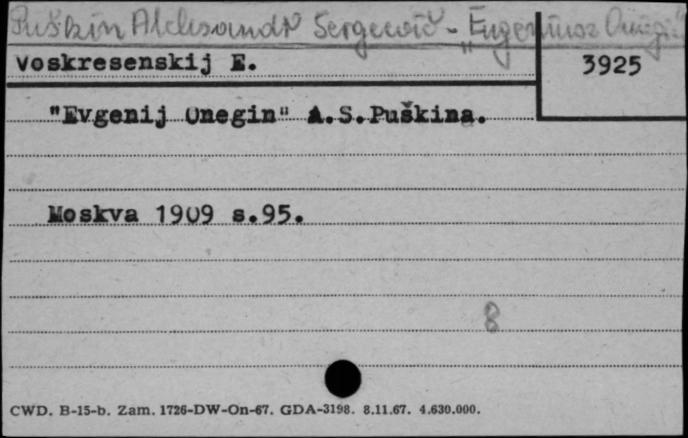 Puškin Aleksandr Sergeevič - "Eugeniusz Oniegin"
Voskresenskij E.
3925
"Evgenij Onegin" A.S.Puškina.
Moskva 1909 s.95.
8
CWD. B-15-b. Zam. 1726-DW-On-67. GDA-3198. 8.11.67. 4.630.000.